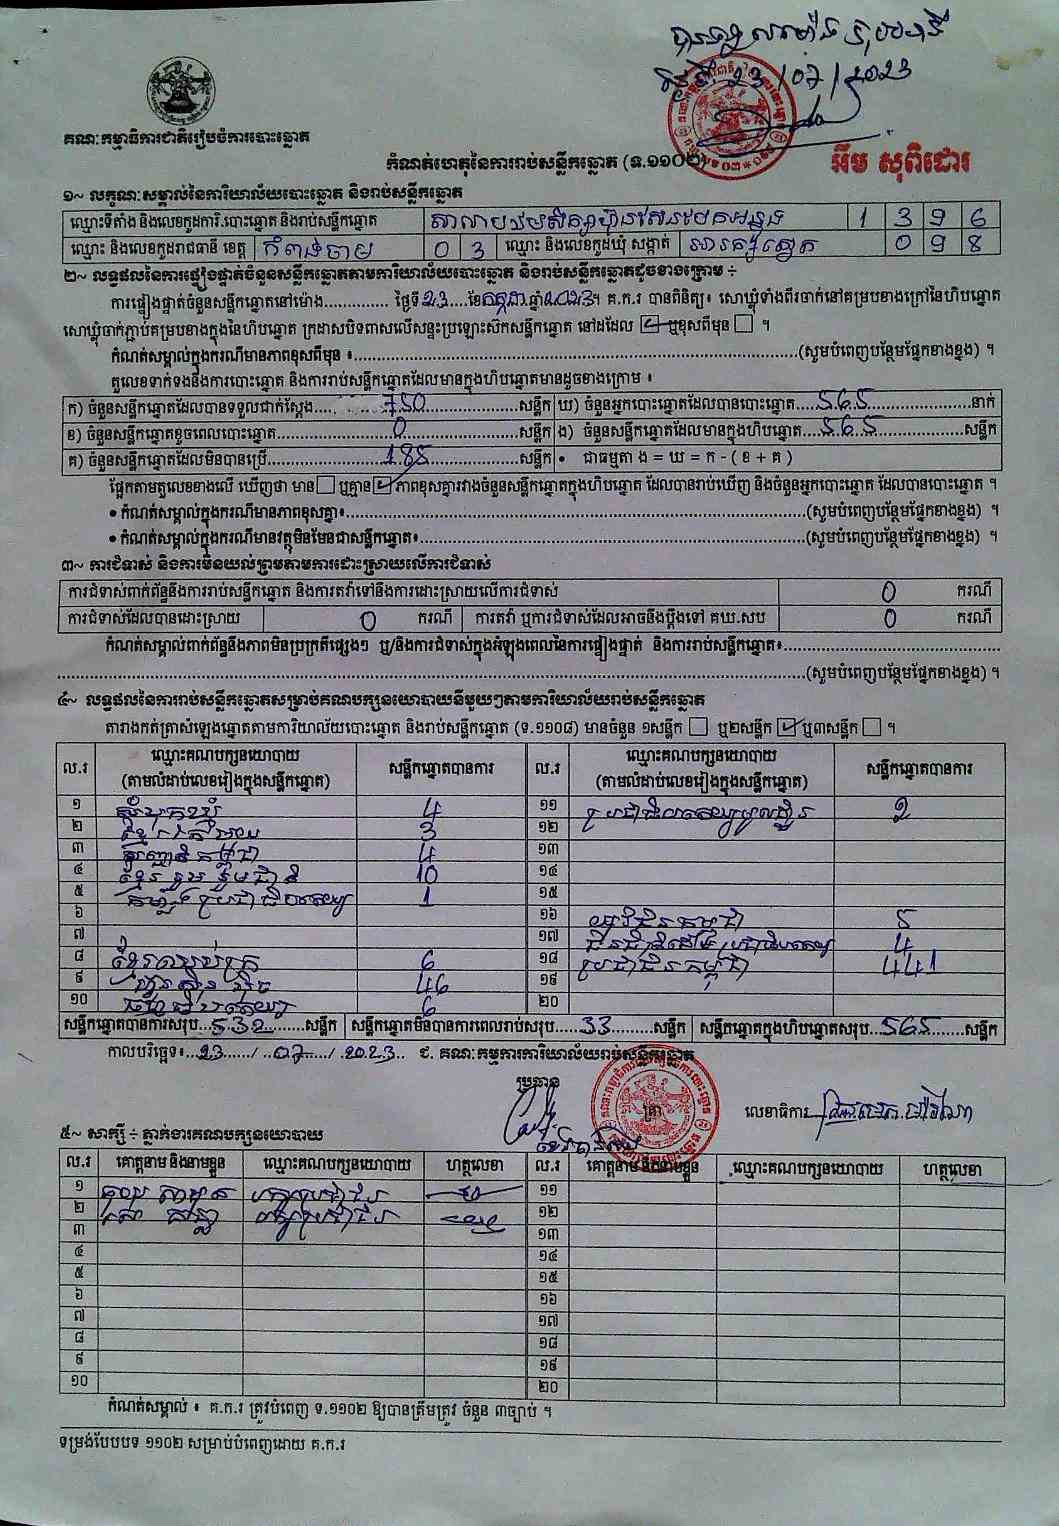 ថ្ងៃទី 23 / 07 / 2023
គណៈកម្មាធិការជាតិរៀបចំការបោះឆ្នោត
កំណត់ហេតុនៃការរាប់សន្លឹកឆ្នោត (ទ.១១០២)
អឹម សុពិជោរ
១~ លក្ខណៈសម្គាល់នៃការិយាល័យបោះឆ្នោត និងរាប់សន្លឹកឆ្នោត
ឈ្មោះទីតាំង និងលេខកូដការិ.បោះឆ្នោត និងរាប់សន្លឹកឆ្នោត 1 3 9 6
ឈ្មោះ និងលេខកូដរាជធានី ខេត្ត កំពង់ចាម 0 3 ឈ្មោះ និងលេខកូដឃុំ សង្កាត់ 0 9 8
២~ លទ្ធផលនៃការផ្ទៀងផ្ទាត់ចំនួនសន្លឹកឆ្នោតតាមការិយាល័យបោះឆ្នោត និងរាប់សន្លឹកឆ្នោតដូចខាងក្រោម ÷
ការផ្ទៀងផ្ទាត់ចំនួនសន្លឹកឆ្នោតនៅម៉ោង.............. ថ្ងៃទី23....ខែកក្កដា.ឆ្នាំ2023។ គ.ក.រ បានពិនិត្យ៖ សោឃ្លុំទាំងពីរចាក់នៅគម្របខាងក្រៅនៃហិបឆ្នោត
សោឃ្លុំចាក់ភ្ជាប់គម្របខាងក្នុងនៃហិបឆ្នោត ក្រដាសបិទពាសលើសន្ទះប្រឡោះស៊កសន្លឹកឆ្នោត នៅដដែល ☑ ឬខុសពីមុន ☐ ។
កំណត់សម្គាល់ក្នុងករណីមានភាពខុសពីមុន ៖.......(សូមបំពេញបន្ថែមផ្នែកខាងខ្នង) ។
តួលេខទាក់ទងនឹងការបោះឆ្នោត និងការរាប់សន្លឹកឆ្នោតដែលមានក្នុងហិបឆ្នោតមានដូចខាងក្រោម ៖
ក) ចំនួនសន្លឹកឆ្នោតដែលបានទទួលជាក់ស្តែង....750....សន្លឹក ឃ) ចំនួនអ្នកបោះឆ្នោតដែលបានបោះឆ្នោត....565....នាក់
ខ) ចំនួនសន្លឹកឆ្នោតខូចពេលបោះឆ្នោត....0....សន្លឹក ង) ចំនួនសន្លឹកឆ្នោតដែលមានក្នុងហិបឆ្នោត....565....សន្លឹក
គ) ចំនួនសន្លឹកឆ្នោតដែលមិនបានប្រើ....185....សន្លឹក • ជាធម្មតា ង = ឃ = ក - ( ខ + គ )
ផ្អែកតាមតួលេខខាងលើ ឃើញថា មាន ☐ ឬគ្មាន ☑ ភាពខុសគ្នារវាងចំនួនសន្លឹកឆ្នោតក្នុងហិបឆ្នោត ដែលបានរាប់ឃើញ និងចំនួនអ្នកបោះឆ្នោត ដែលបានបោះឆ្នោត ។
• កំណត់សម្គាល់ក្នុងករណីមានភាពខុសគ្នា៖.......(សូមបំពេញបន្ថែមផ្នែកខាងខ្នង) ។
• កំណត់សម្គាល់ក្នុងករណីមានវត្ថុមិនមែនជាសន្លឹកឆ្នោត៖.......(សូមបំពេញបន្ថែមផ្នែកខាងខ្នង) ។
៣~ ការជំទាស់ និងការមិនយល់ព្រមតាមការដោះស្រាយលើការជំទាស់
ការជំទាស់ពាក់ព័ន្ធនឹងការរាប់សន្លឹកឆ្នោត និងការតវ៉ាទៅនឹងការដោះស្រាយលើការជំទាស់ 0 ករណី
ការជំទាស់ដែលបានដោះស្រាយ 0 ករណី ការតវ៉ា ឬការជំទាស់ដែលអាចនឹងប្តឹងទៅ គឃ.សប 0 ករណី
កំណត់សម្គាល់ពាក់ព័ន្ធនឹងភាពមិនប្រក្រតីផ្សេងៗ ឬ/និងការជំទាស់ក្នុងអំឡុងពេលនៃការផ្ទៀងផ្ទាត់ និងការរាប់សន្លឹកឆ្នោត៖.......
.......(សូមបំពេញបន្ថែមផ្នែកខាងខ្នង) ។
៤~ លទ្ធផលនៃការរាប់សន្លឹកឆ្នោតសម្រាប់គណបក្សនយោបាយនីមួយៗតាមការិយាល័យរាប់សន្លឹកឆ្នោត
តារាងកត់ត្រាសំឡេងឆ្នោតតាមការិយាល័យបោះឆ្នោត និងរាប់សន្លឹកឆ្នោត (ទ.១១០៨) មានចំនួន ១សន្លឹក ☐ ឬ២សន្លឹក ☑ ឬ៣សន្លឹក ☐ ។
ល.រ ឈ្មោះគណបក្សនយោបាយ (តាមលំដាប់លេខរៀងក្នុងសន្លឹកឆ្នោត) សន្លឹកឆ្នោតបានការ ល.រ ឈ្មោះគណបក្សនយោបាយ (តាមលំដាប់លេខរៀងក្នុងសន្លឹកឆ្នោត) សន្លឹកឆ្នោតបានការ
១ សំបុកឃ្មុំ 4 ១១ ប្រជាធិបតេយ្យមូលដ្ឋាន 2
២ 3 ១២
៣ 4 ១៣
៤ ខ្មែររួបរួមជាតិ 10 ១៤
៥ កម្លាំងប្រជាធិបតេយ្យ 1 ១៥
៦ ១៦ យុវជនកម្ពុជា 5
៧ ១៧ 4
៨ 6 ១៨ ប្រជាជនកម្ពុជា 441
៩ ហ៊្វុនស៊ិនប៉ិច 46 ១៩
១០ 6 ២០
សន្លឹកឆ្នោតបានការសរុប...532.......សន្លឹក សន្លឹកឆ្នោតមិនបានការពេលរាប់សរុប.....33.......សន្លឹក សន្លឹកឆ្នោតក្នុងហិបឆ្នោតសរុប...565......សន្លឹក
កាលបរិច្ឆេទ៖...23....../...07..../..2023.. ជ. គណៈកម្មការការិយាល័យរាប់សន្លឹកឆ្នោត
ប្រធាន ត្រា លេខាធិការ
៥~ សាក្សី ÷ ភ្នាក់ងារគណបក្សនយោបាយ
ល.រ គោត្តនាម និងនាមខ្លួន ឈ្មោះគណបក្សនយោបាយ ហត្ថលេខា ល.រ គោត្តនាម និងនាមខ្លួន ឈ្មោះគណបក្សនយោបាយ ហត្ថលេខា
១ ១១
២ ១២
៣ ១៣
៤ ១៤
៥ ១៥
៦ ១៦
៧ ១៧
៨ ១៨
៩ ១៩
១០ ២០
កំណត់សម្គាល់ ៖ គ.ក.រ ត្រូវបំពេញ ទ.១១០២ ឱ្យបានត្រឹមត្រូវ ចំនួន ៣ច្បាប់ ។
ទម្រង់បែបបទ ១១០២ សម្រាប់បំពេញដោយ គ.ក.រ